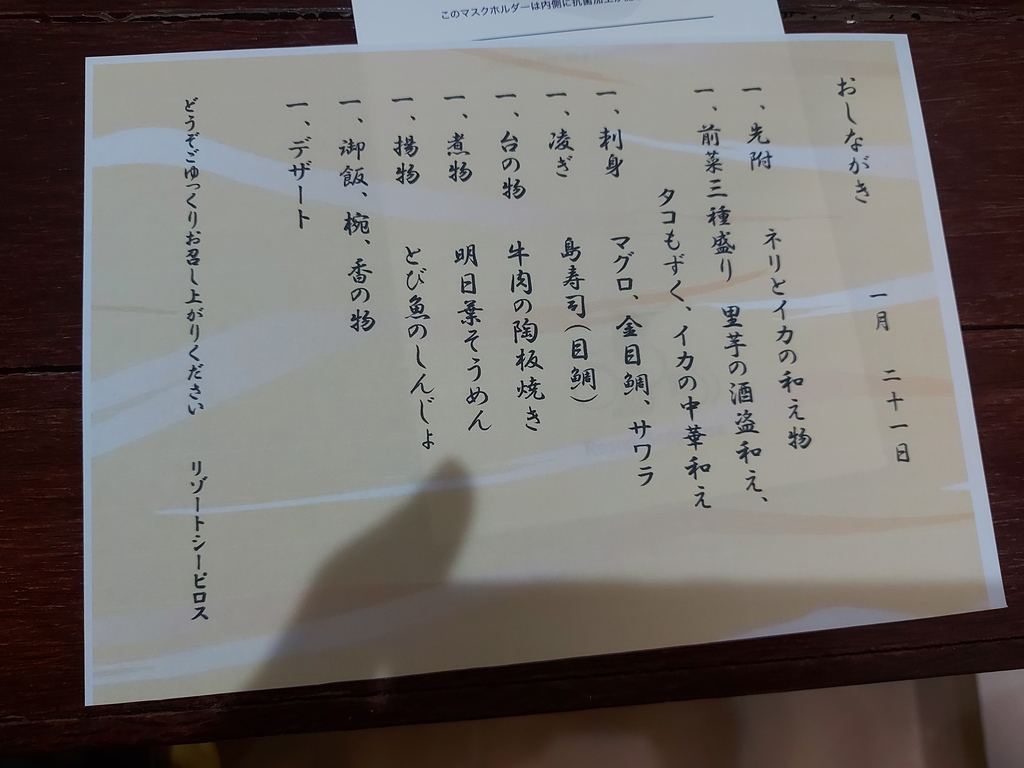 このマスクホルダーは内側に抗菌加工が
おしながき
一月 二十一日
一、先附 ネリとイカの和え物
一、前菜三種盛り 里芋の酒盗和え、
タコもずく、イカの中華和え
一、刺身 マグロ、金目鯛、サワラ
一、凌ぎ 島寿司(目鯛)
一、台の物 牛肉の陶板焼き
一、煮物 明日葉そうめん
一、揚物 とび魚のしんじょ
一、御飯、椀、香の物
一、デザート
どうぞごゆっくりお召し上がりください リゾートシーピロス